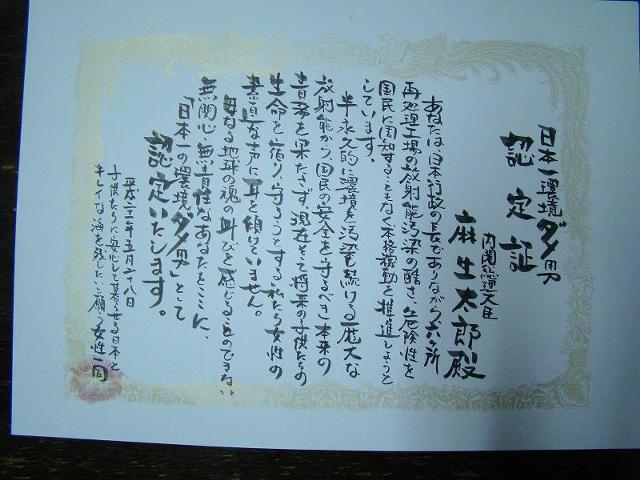 日本一環境ダメ男
認定証
内閣総理大臣
麻生太郎殿
あなたは、日本行政の長でありながら六ヶ所
再処理工場の放射能汚染の酷さ、危険性を
国民に周知することもなく本格稼動を推進しようと
しています。
半永久的に環境を汚染し続ける厖大な
放射能から、国民の安全を守るべき本来の
責務を果たさず、現在そして将来の子供たちの
生命を宿し守ろうとする私たち女性の
素直な声に耳を傾けていません。
母なる地球の魂の叫びを感じることのできない
無関心・無責任なあなたをここに、
「日本一の環境ダメ男」として
認定いたします。
平成二十一年五月二十八日
子供たちに安心して暮らせる日本と
キレイな海を残したいと願う女性一同